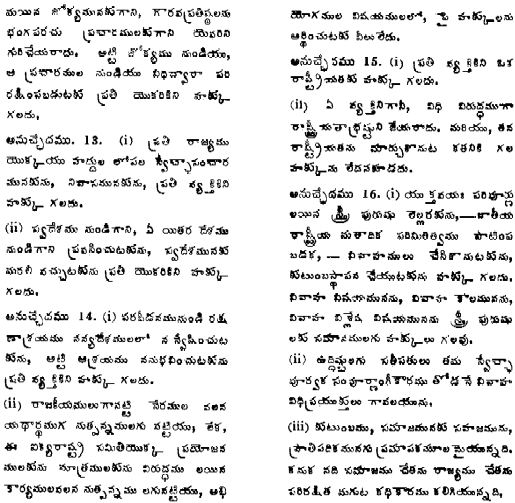 మయిన జోక్యమునకుగాని, గౌరవప్రతిష్ఠలను
భంగపరచు ప్రచారములకుగాని యెవరిని
గురిచేయరాదు. అట్టి జోక్యము నుండియు,
ఆ ప్రచారముల నుండియు విధిద్వారా పరి
రక్షింపబడుటకు ప్రతి యొకరికిని హక్కు
గలదు.
అనుచ్ఛేదము. 13. (i) ప్రతి రాజ్యము
యొక్కయు హద్దుల లోపల స్వేచ్ఛాసంచార
మునకును, నివాసమునకును, ప్రతి వ్యక్తికిని
హక్కు గలదు.
(ii) స్వదేశము నుండిగాని, ఏ యితర దేశము
నుండిగాని ప్రవసించుటకును, స్వదేశమునకు
మరలి వచ్చుటకును ప్రతి యొకరికిని హక్కు
గలదు.
అనుచ్ఛేదము 14. (i) పరపీడనమునుండి రక్ష
ణాశ్రయము నన్యదేశములలో న న్వేషించుట
కును, అట్టి ఆశ్రయము ననుభవించుటకును
ప్రతి వ్యక్తికిని హక్కు గలదు.
(ii) రాజకీయములుగానట్టి నేరముల వలన
యథార్థముగ నుత్పన్నములగు నట్టియు, లేక,
ఈ ఐక్యరాష్ట్ర సమితియొక్క ప్రయోజన
ములకును సూత్రములకును విరుద్ధము లయిన
కార్యములవలన నుత్పన్నము లగునట్టియు, అభి
యోగముల విషయములలో, పై హక్కులను
అర్థించుటకు వీలులేదు.
అనుచ్ఛేదము 15. (i) ప్రతి వ్యక్తికిని ఒక
రాష్ట్రీయతకు హక్కు గలదు.
(ii) ఏ వ్యక్తినిగానీ, విధి విరుద్ధముగా
రాష్ట్రీయతాభ్రష్టుని జేయరాదు. మరియు, తన
రాష్ట్రీయతను మార్చుకొనుట కతనికి గల
హక్కును లేదనకూడదు.
అనుచ్ఛేదము 16. (i) యుక్తవయః పరిపూర్ణు
లయిన స్త్రీ పురుషు లెల్లరకును,—జాతీయ
రాష్ట్రీయ మతాదిక పరిమితిత్వము పాటింప
బడక, — వివాహములు చేసికొనుటకును,
కుటుంబస్థాపన చేయుటకును హక్కు గలదు.
వివాహ విషయమునను, వివాహ కాలమునను,
వివాహ విశ్లేష విషయమునను స్త్రీ పురుషు
లకు సమానములగు హక్కులు గలవు.
(ii) ఉద్దిష్టులగు సతీపతులు తమ స్వేచ్ఛా
పూర్వక సంపూర్ణాంగీకారము తోడనే వివాహ
విధిప్రయుక్తులు గావలయును.
(iii) కుటుంబము, సమాజమునకు సహజమును,
ప్రాతిపదికమునగు ప్రమాపకమూలమైయున్నది.
కనుక నది సమాజము చేతను రాజ్యము చేతను
పరిరక్షిత మగుట కధికారము కలిగియున్నది.